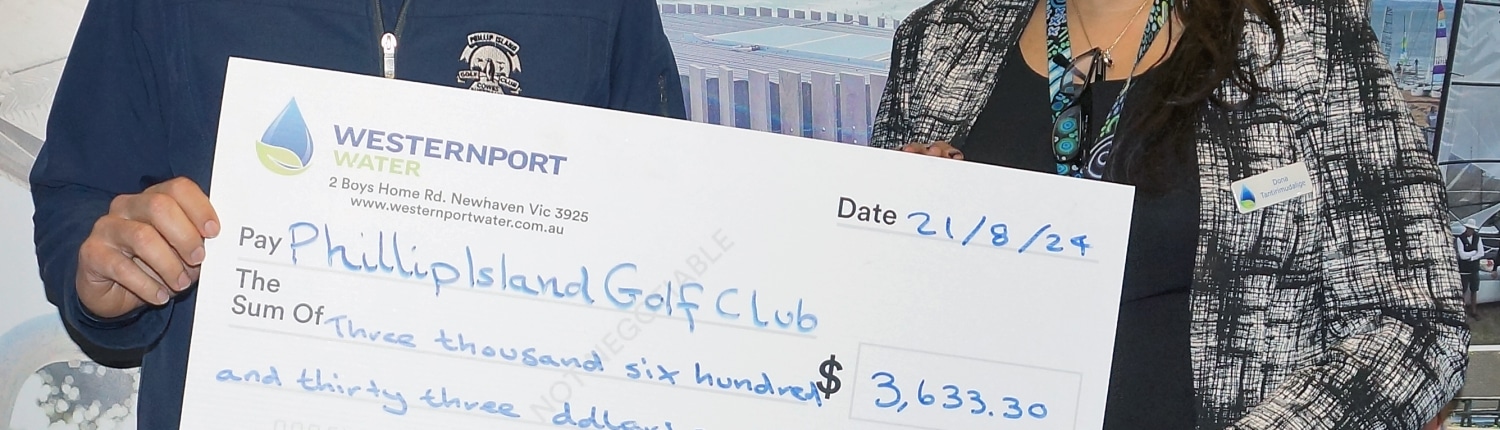 PHILLIP ISLAND
GOLF CLUB
COWES
WESTERNPORT
WATER
2 Boys Home Rd. Newhaven Vic 3925
www.westernportwater.com.au
Date 21/8/24
Pay Phillip Island Golf Club
The
Sum Of Three thousand six hundred
$ 3,633.30
and thirty three dollars
NOT NEGOTIABLE
Dona
Tantirimudalige